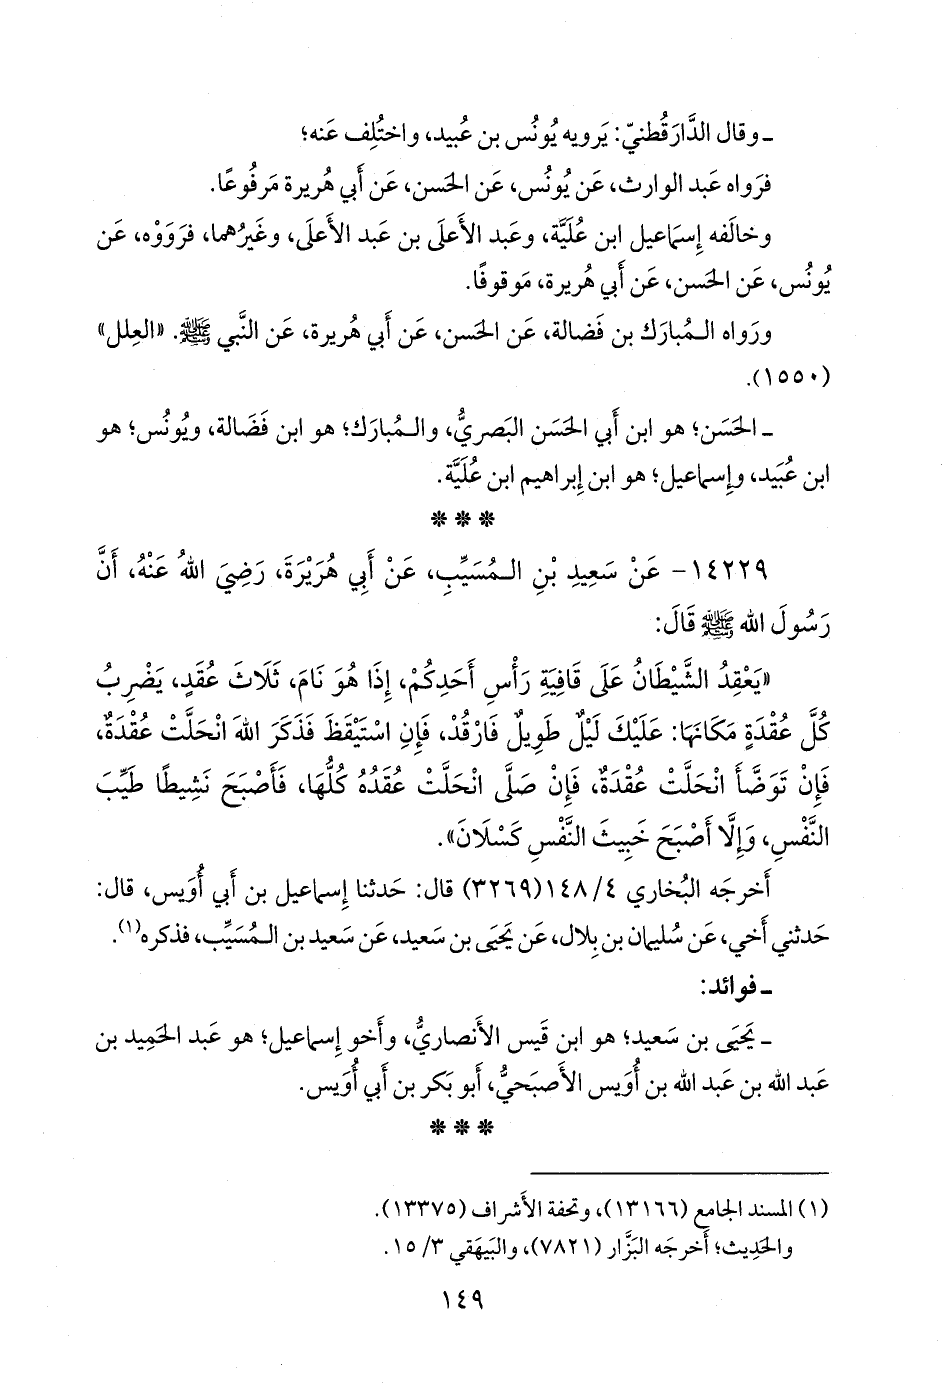 ـ وقال الدَّارَقُطنيّ: يَرويه يُونُس بن عُبيد، واختُلِف عَنه؛
فرَواه عَبد الوارث، عَن يُونُس، عَن الحَسن، عَن أَبي هُريرة مَرفُوعًا.
وخالَفه إِسماعيل ابن عُلَيَّة، وعَبد الأَعلَى بن عَبد الأَعلَى، وغَيرُهما، فرَوَوْه، عَن
يُونُس، عَن الحَسن، عَن أَبي هُريرة، مَوقوفًا.
ورَواه المُبارَك بن فَضالة، عَن الحَسن، عَن أَبي هُريرة، عَن النَّبي ﷺ. «العِلل»
(١٥٥٠).
ـ الحَسَن؛ هو ابن أَبي الحَسَن البَصريُّ، والمُبارَك؛ هو ابن فَضَالة، ويُونُس؛ هو
ابن عُبَيد، وإِسماعيل؛ هو ابن إِبراهيم ابن عُلَيَّة.
* * *
١٤٢٢٩- عَنْ سَعِيدِ بْنِ المُسَيِّبِ، عَنْ أَبِي هُرَيْرَةَ، رَضِيَ اللهُ عَنْهُ، أَنَّ
رَسُولَ الله ﷺ قَالَ:
«يَعْقِدُ الشَّيْطَانُ عَلَى قَافِيَةِ رَأْسِ أَحَدِكُمْ، إِذَا هُوَ نَامَ، ثَلَاثَ عُقَدٍ، يَضْرِبُ
كُلَّ عُقْدَةٍ مَكَانَهَا: عَلَيْكَ لَيْلٌ طَوِيلٌ فَارْقُدْ، فَإِنِ اسْتَيْقَظَ فَذَكَرَ اللهَ انْحَلَّتْ عُقْدَةٌ،
فَإِنْ تَوَضَّأَ انْحَلَّتْ عُقْدَةٌ، فَإِنْ صَلَّى انْحَلَّتْ عُقَدُهُ كُلُّهَا، فَأَصْبَحَ نَشِيطًا طَيِّبَ
النَّفْسِ، وَإِلَّا أَصْبَحَ خَبِيثَ النَّفْسِ كَسْلَانَ».
أَخرجَه البُخاري ٤/ ١٤٨(٣٢٦٩) قال: حَدثنا إِسماعيل بن أَبي أُوَيس، قال:
حَدثني أَخي، عَن سُليمان بن بِلال، عَن يَحيَى بن سَعيد، عَن سَعيد بن المُسَيِّب، فذكره(١).
ـ فوائد:
ـ يَحيَى بن سَعيد؛ هو ابن قَيس الأَنصاريُّ، وأَخو إِسماعيل؛ هو عَبد الحَمِيد بن
عَبد الله بن عَبد الله بن أُوَيس الأَصبَحيُّ، أَبو بَكر بن أَبي أُوَيس.
* * *
(١) المسند الجامع (١٣١٦٦)، وتحفة الأَشراف (١٣٣٧٥).
والحَدِيث؛ أَخرجَه البَزَّار (٧٨٢١)، والبَيهَقي ٣/ ١٥.
١٤٩